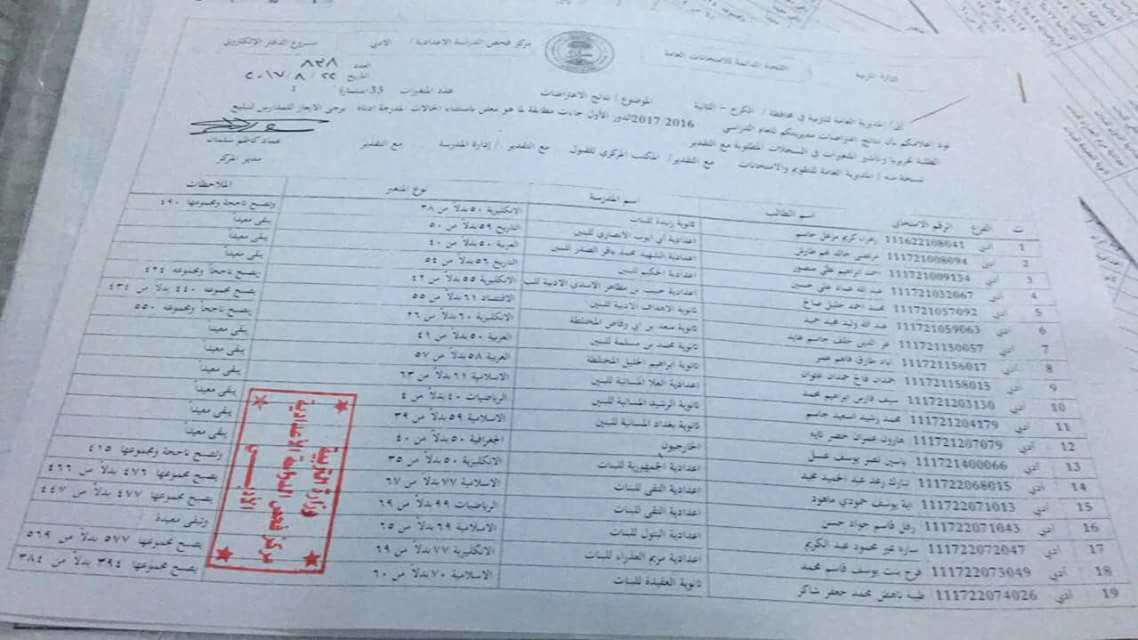 وزارة التربية
اللجنة الدائمة للامتحانات العامة
مركز فحص الدراسة الاعدادية / الادبي
مشروع الدفتر الالكتروني
العدد ٨٢٨
التاريخ ٢٢ / ٨ / ٢٠١٧
الى / المديرية العامة للتربية في محافظة / الكرخ - الثانية
الموضوع / نتائج الاعتراضات
عدد المتغيرات 33 استمارة
نود اعلامكم بأن نتائج اعتراضات مديريتكم للعام الدراسي 2016 2017 الدور الأول جاءت مطابقة لما هو معلن باستثناء الحالات المدرجة ادناه يرجى الايعاز للمدارس لتبليغ
الطلبة تحريريا وتأشير المتغيرات في السجلات المطلوبة مع التقدير
عماد كاظم سلمان
نسخة منه / المديرية العامة للتقويم والامتحانات مع التقدير / المكتب المركزي للقبول مع التقدير / إدارة المدرسة مع التقدير
مدير المركز
ت الفرع الرقم الامتحاني اسم الطالب اسم المدرسة نوع المتغير الملاحظات
1 أدبي 111622108041 زهراء كريم مزعل جاسم ثانوية زبيدة للبنات الانكليزية ٥٠ بدلاً من ٣٨ وتصبح ناجحة ومجموعها ٤٩٠
2 أدبي 111721008094 مرتضى خالد نعم اعدادية أبي ايوب الانصاري للبنين التاريخ ٥٩ بدلاً من ٥٠ يبقى معيداً
3 أدبي 111721009154 احمد ابراهيم علي منصور اعدادية الشهيد محمد باقر الصدر للبنين العربية ٥٠ بدلاً من ٤٠ يبقى معيداً
4 أدبي 111721032067 عبد الله عماد علي حسين اعدادية الحكيم للبنين التاريخ ٥٦ بدلاً من ٥٤ يبقى معيداً
5 أدبي 111721057092 محمد احمد خليل صالح اعدادية حبيب بن مظاهر الاسدي الادبية للبنين الانكليزية ٥٥ بدلاً من ٤٢ يصبح ناجحاً ومجموعه ٤٢٤
6 أدبي 111721059063 عبد الله وليد عبد حميد ثانوية الاهداف الادبية للبنين الاقتصاد ٦١ بدلاً من ٥٥ يصبح مجموعه ٤٤٠ بدلاً من ٤٣٤
7 أدبي 111721150057 عز الدين خلف جاسم عايد ثانوية سعد بن ابي وقاص المختلطة الانكليزية ٦٠ بدلاً من ٢٦ يصبح ناجحاً ومجموعه ٥٥٠
8 أدبي 111721156017 اياد طارق ثانوية محمد بن مسلمة للبنين العربية ٥٠ بدلاً من ٤٩ يبقى معيداً
9 أدبي 111721158015 حمدان فلاح حمدان علوان ثانوية ابراهيم الخليل المختلطة العربية ٥٨ بدلاً من ٥٧ يبقى معيداً
10 أدبي 111721203130 سيف فارس ابراهيم محمد اعدادية العلا المسائية للبنين الاسلامية ٦٦ بدلاً من ٦٣ يبقى معيداً
11 أدبي 111721204179 محمد رشيد اسعيد جاسم ثانوية الرشيد المسائية للبنين الرياضيات ٤٠ بدلاً من ٤ يبقى معيداً
12 أدبي 111721207079 هارون عمران خضر نايه ثانوية بغداد المسائية للبنين الاسلامية ٥٩ بدلاً من ٣٩ يبقى معيداً
13 أدبي 111721400066 ياسين نصر يوسف عسل الخارجيون الجغرافية ٥٠ بدلاً من ٤٠ يبقى معيداً
14 أدبي 111722068015 تبارك رعد عبد الحميد مجيد اعدادية الجمهورية للبنات الانكليزية ٥٠ بدلاً من ٣٥ وتصبح ناجحة ومجموعها ٤٢٥
15 أدبي 111722071013 اية يوسف حمودي ماهود اعدادية التقى للبنات الاسلامية ٧٧ بدلاً من ٦٧ يصبح مجموعها ٤٧٦ بدلاً من ٤٦٦
16 أدبي 111722071043 رفل قاسم جواد حسن اعدادية التقى للبنات الرياضيات ٩٩ بدلاً من ٦٩ يصبح مجموعها ٤٧٧ بدلاً من ٤٤٧
17 أدبي 111722072047 ساره عمر محمود عبد الكريم اعدادية البتول للبنات الاسلامية ٦٩ بدلاً من ٦٥ وتبقى معيدة
18 أدبي 111722073049 فرح بنت يوسف قاسم محمد اعدادية مريم العذراء للبنات الانكليزية ٧٧ بدلاً من ٦٩ يصبح مجموعها ٥٧٧ بدلاً من ٥٦٩
19 أدبي 111722074026 طيبة ناهض محمد جعفر شاكر ثانوية العقيدة للبنات الاسلامية ٧٠ بدلاً من ٦٠ يصبح مجموعها ٣٩٤ بدلاً من ٣٨٤
وزارة التربية
مركز فحص الدراسة الاعدادية
الادبي